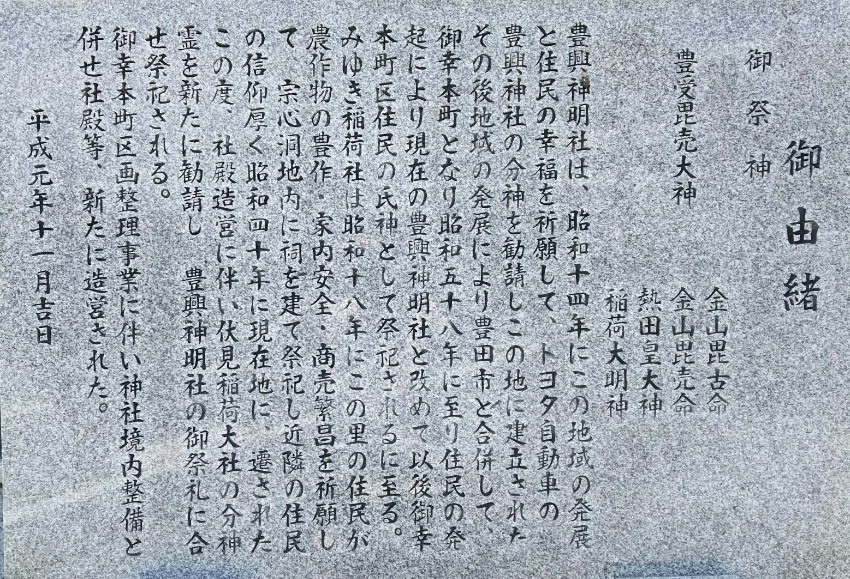 御由緒
御祭神
豊受毘売大神
金山毘古命
金山毘売命
熱田皇大神
稲荷大明神
豊興神明社は、昭和十四年にこの地域の発展
と住民の幸福を祈願して、トヨタ自動車の
豊興神社の分神を勧請しこの地に建立された
その後地域の発展により豊田市と合併して、
御幸本町となり昭和五十八年に至り住民の発
起により現在の豊興神明社と改めて以後御幸
本町区住民の氏神として祭祀されるに至る。
みゆき稲荷社は昭和十八年にこの里の住民が
農作物の豊作・家内安全・商売繁昌を祈願し
て、宗心洞地内に祠を建て祭祀し近隣の住民
の信仰厚く昭和四十年に現在地に、遷された
この度、社殿造営に伴い伏見稲荷大社の分神
霊を新たに勧請し 豊興神明社の御祭礼に合
せ祭祀される。
御幸本町区画整理事業に伴い神社境内整備と
併せ社殿等、新たに造営された。
平成元年十一月吉日